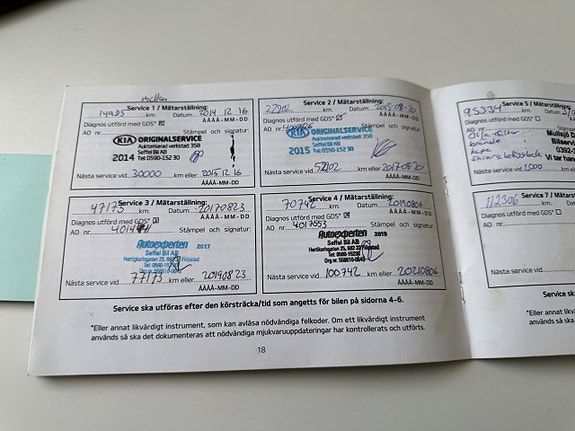 Service 1 / Mätarställning:
14985 km. Datum 2014.12.16
ÅÅÅÅ-MM-DD
Diagnos utförd med GDS*
AO nr Stämpel och signatur:
KIA ORIGINALSERVICE
Auktoriserad verkstad 358
Seffel Bil AB
2014 Tel: 0590-152 30
Nästa service vid 30000 km eller 2015.12.16
ÅÅÅÅ-MM-DD
Service 2 / Mätarställning:
km. Datum 2015-08-20
ÅÅÅÅ-MM-DD
Diagnos utförd med GDS*
AO nr Stämpel och signatur:
KIA ORIGINALSERVICE
Auktoriserad verkstad 358
Seffel Bil AB
2015 Tel: 0590-152 30
Nästa service vid km eller 2017-08-20
ÅÅÅÅ-MM-DD
Service 3 / Mätarställning:
47173 km. Datum 20170823
ÅÅÅÅ-MM-DD
Diagnos utförd med GDS*
AO nr Stämpel och signatur:
Autoexperten 2017
Seffel Bil AB
Nästa service vid 77173 km eller 20190823
ÅÅÅÅ-MM-DD
Service 4 / Mätarställning:
70742 km. Datum 20190806
ÅÅÅÅ-MM-DD
Diagnos utförd med GDS*
AO nr 4017553 Stämpel och signatur:
Autoexperten 2019
Seffel Bil AB
Nästa service vid 100742 km eller 20210806
ÅÅÅÅ-MM-DD
Service ska utföras efter den körsträcka/tid som angetts för bilen på sidorna 4–6.
*Eller annat likvärdigt instrument, som kan avläsa nödvändiga felkoder. Om ett likvärdigt instrument
används så ska det dokumenteras att nödvändiga mjukvaruuppdateringar har kontrollerats och utförts.
18
Service 5 /
95334 km.
Diagnos utförd med GDS*
AO nr
Mullsjö
Bilserv
0392-
Vi tar han
Nästa service vid
Service 7
112306 km.
Diagnos utförd med GDS*
AO nr
Nästa service vid
Service ska
*Eller annat
används så